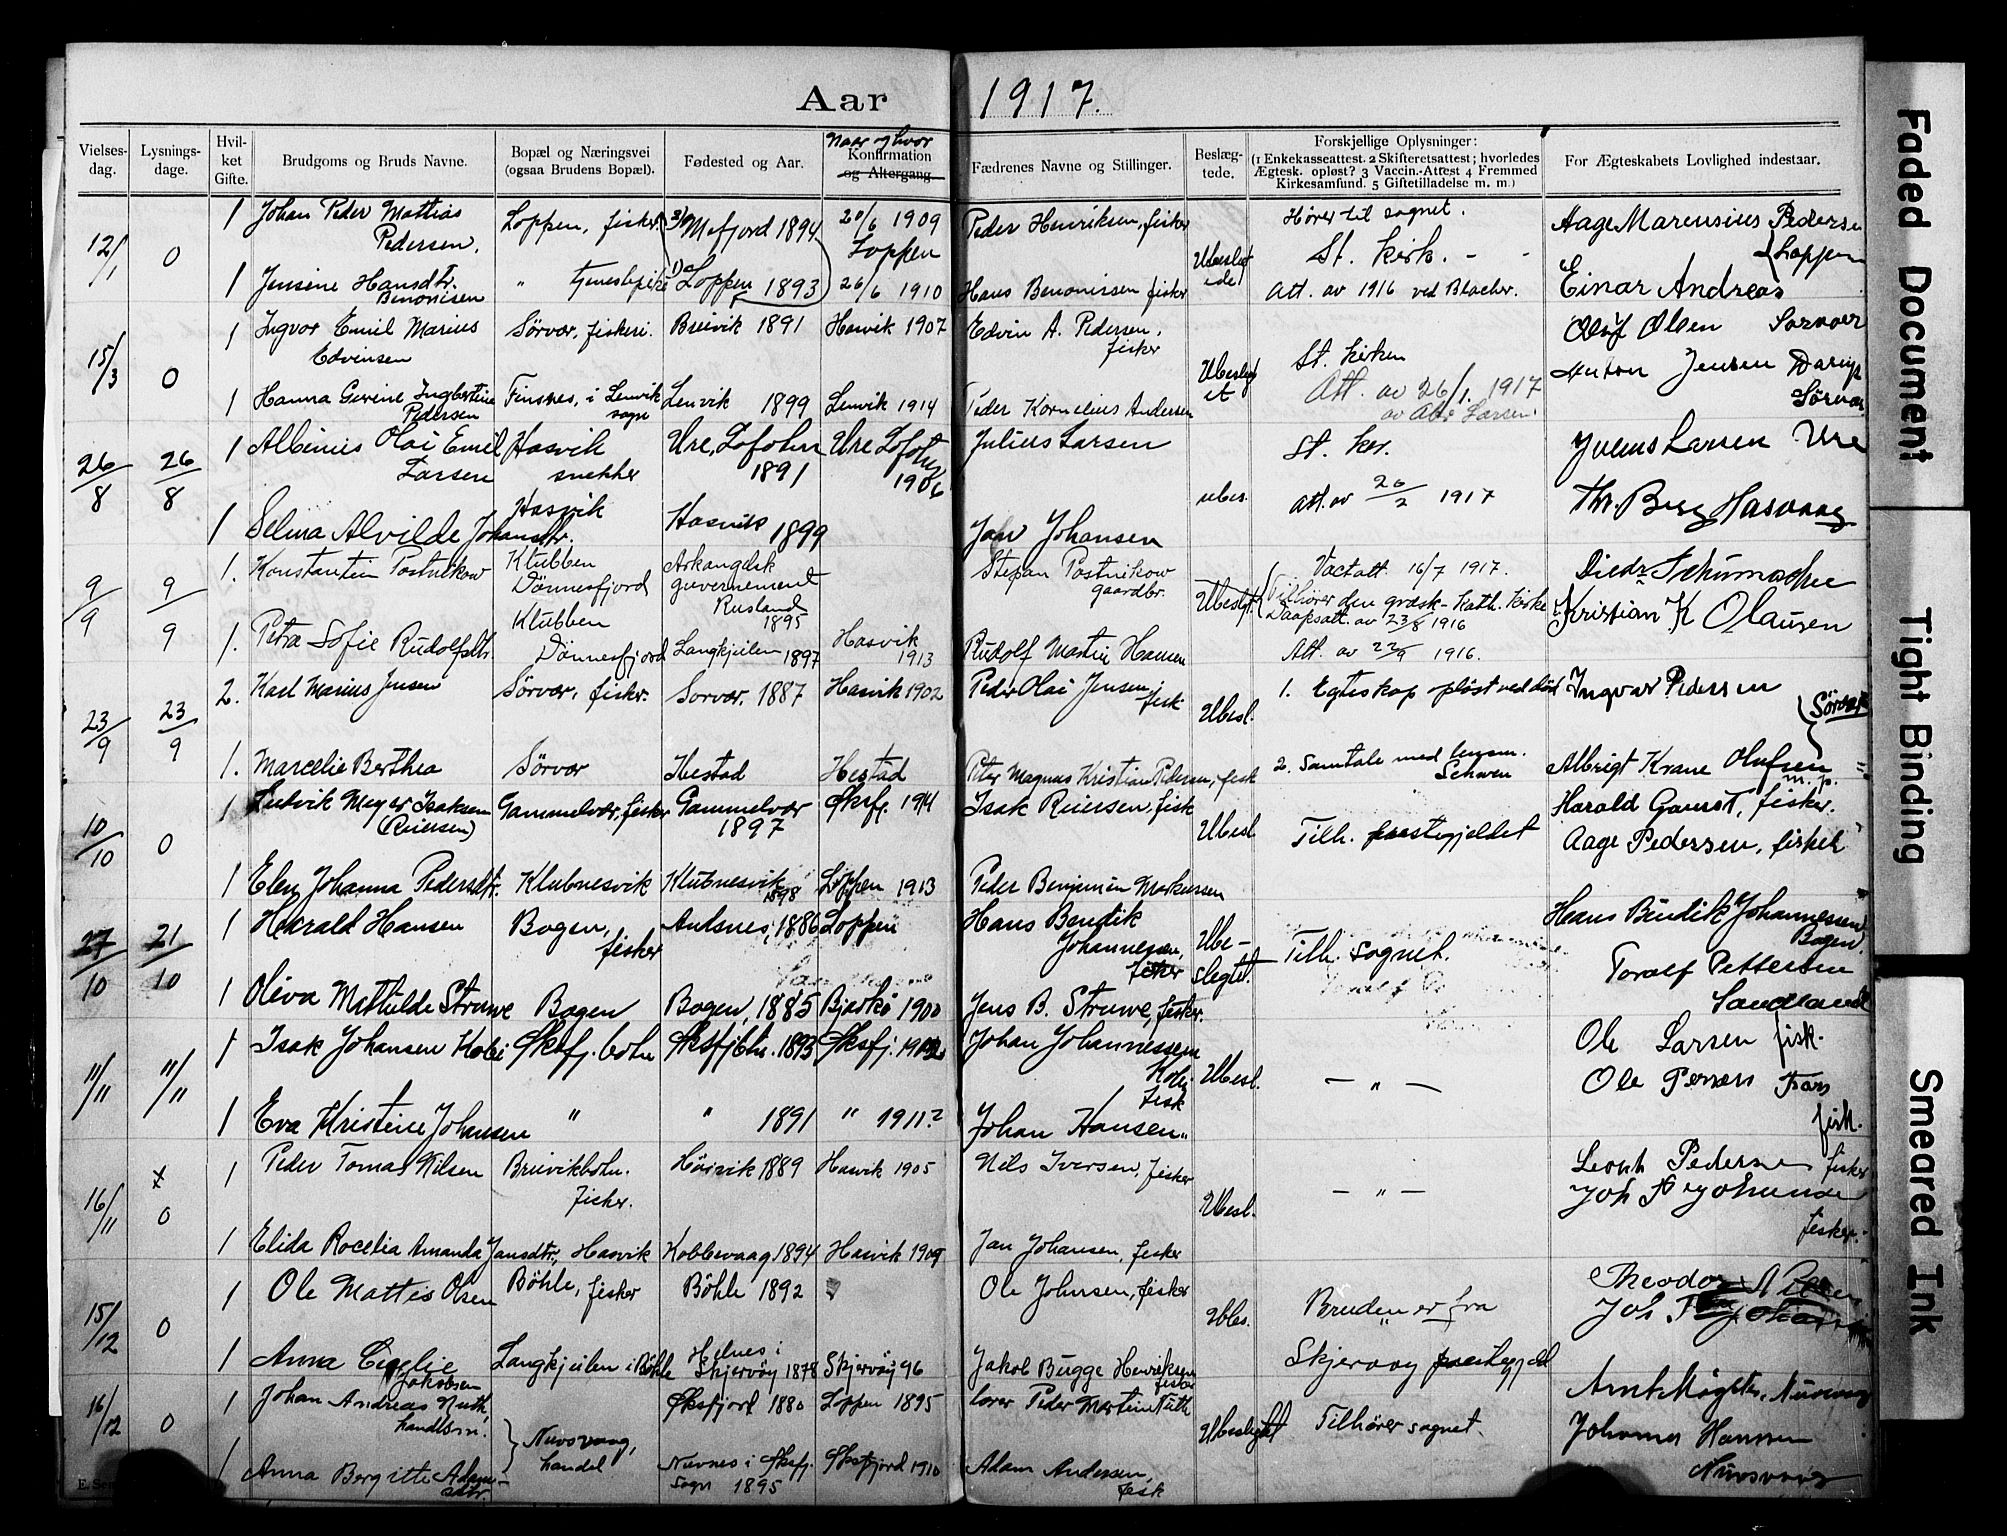 Aar 1917.
Vielses-dag. Lysnings-dage. Hvil-ket Gifte. Brudgoms og Bruds Navne. Bopæl og Næringsvei (ogsaa Brudens Bopæl). Fødested og Aar. Naar og hvor Konfirmation og Altergang Fædrenes Navne og Stillinger. Beslæg-tede. Forskjellige Oplysninger: (1 Enkekasseattest. 2 Skifteretsattest; hvorledes Ægtesk. opløst? 3 Vaccin.-Attest 4 Fremmed Kirkesamfund. 5 Giftetilladelse m. m.) For Ægteskabets Lovlighed indestaar.
12/1 0 1 Johan Peder Mattias Loppen, fisker Mefjord 1894 20/6 1909 Peder Henriksen, fisker Hører til sognet. Aage Marensius Pederse
Pedersen, Loppen Ubeslegt St. kirk. - - Loppen
1 Jensine Hansdtr. " tjenestepike Loppen 1893 26/6 1910 Hans Benonissen fisker ede Att. av 1916 ved Blacher. Einar Andreas
Benonisen
15/3 0 1 Ingvor Emil Marius Sørvær, fiskeri. Breivik 1891 Hasvik 1907 Edvin A. Pedersen, Oluf Olsen Sørvær
Edvinsen fisker Ubeslegt St. kirken Anton Jensen
1 Hanna Gerine Ingbertine Finsnes, i Lenvik Lenvik 1899 Lenvik 1914 Peder Kornelius Andersen et Att. av 26/1. 1917 Sørvær
Pedersen sogn av Larsen.
26/8 26/8 1 Albinus Olai Emil Hasvik Ure, Lofoten Ure Lofoten Julius Larsen St. kir. Julius Larsen Ure
Larsen snekker 1891 1906
Hasvik ubes. Att. av 26/2 1917 Th. Berg Hasvaag
1 Selma Alvilde Johansdtr. Hasvik 1899 Jan Johansen
9/9 9/9 1. Konstantin Postnikow Klubben Arkangelsk Stepan Postnikow Vacsatt. 16/7 1917. Diedr. Schumacher
Dønnesfjord guvernement gaardbr. Ubeslgt. Tilhører den græsk-kath. kirke Kristian K Olausen
Klubben Rusland 1895 Daapsatt. av 23/8 1916
1. Petra Sofie Rudolfsdtr. Dønnesfjord Langkjeilen 1897 Hasvik 1913 Rudolf Martin Hansen Att. av 22/9 1916.
23/9 23/9 2. Karl Marius Jensen Sørvær, fisker. Sørvær. 1887 Hasvik 1902 Peder Olai Jensen, fisk. Ubesl. 1. Egteskap opløst ved død Ingvar Pedersen
Sørvær
1. Marcelie Berthea Sørvær Hestad Hestad Peter Magnus Kristian Pedersen, fisk 2. Samtale med lensm. Albrigt Krane Olufsen
Schwen m. p.
10/10 0 1 Ludvik Meyer Isaksen Gammelvær, fisker Gammelvær Øksfj. 1914 Isak Reiersen, fisk Harald Gamst, fisker.
(Reiersen) 1897 Ubesl Tilh. prestegjeldet Aage Pedersen, fisker
1 Elen Johanna Pedersdtr. Klubnesvik Klubnesvik 1898 Loppen 1913 Peder Benjamin Markussen
27/10 21/10 1 Harald Hansen Bogen, Andsnes, 1886 Loppen Hans Bendik Hans Bendik Johannessen
fisker Johannesen, Ube- Tilh. sognet. Bogen
fisker slegtet. Toralf Pettersen
1 Oliva Mathilde Struwe Bogen Bogen, 1885 Bjarkø 1900 Jens B. Struwe, fisker. Sandland
11/11 11/11 1 Isak Johansen Koln Øksfj. botn Øksfjbtn. 1893 Øksfj. Johan Johannessen Ole Larsen fisk.
Ubesl. - " - Ole
fisk
1 Eva Kristine Johansen " " 1891 " 1911? Johan Hansen " fisk.
16/11 0 1 Peder Tomas Nilsen Breivikbotn. Høivik 1889 Hasvik 1905 Nils Iversen, fisker Pedersen fisker
fisker. Ubesl. - " - Joh
fisker.
1 Elida Rocelia Amanda Jansdtr., Hasvik Kobbevaag 1894 Hasvik 1909 Jan Johansen, fisker
15/12 0 1 Ole Mattis Olsen Bøhle, fisker Bøhle 1892 Ole Johnsen, fisker Theodor
Ubes. Bruden er fra Joh
1 Anna Cecelie Langkjeilen i Bøhle Helnes i Skjervøy 1878 Skjervøy 96 Jakob Bugge Henriksen Skjervøy prestegjeld
Jakobsen fisker
16/12 0 1 Johan Andreas Øksfjord 1880 Loppen 1895 Peder Martin Arnt Nuvsvaag
handlsm. Nuvsvaag, handel Ubeslegtet Tilhører sognet. Johannes Hansen
1 Anna Bergitte Adams- Nuvnes i Øksfj. Øksfjord 1910 Adam Andersen, Nuvsvaag
dtr. sogn 1895 fisk
Faded Document
Tight Binding
Smeared Ink